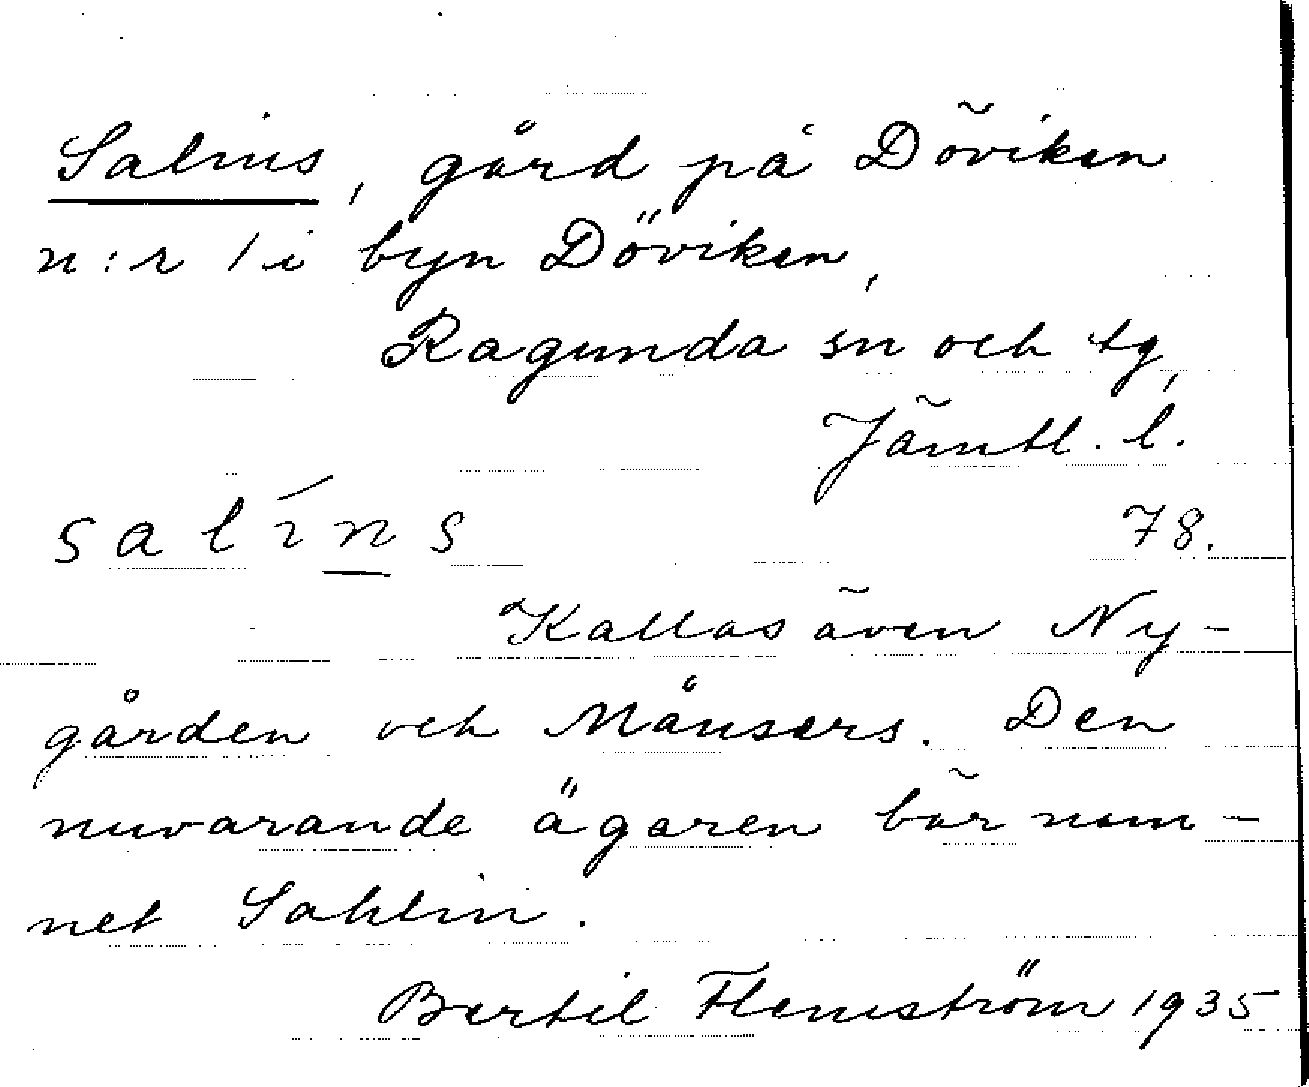 Salins, gård på Döviken
n:r 1 i byn Döviken,
Ragunda sn och tg,
Jämtl. l.
salíns 78.
Kallas även Ny-
gården och Månsers. Den
nuvarande ägaren bär nam-
net Sahlin.
Bertil Flemström 1935